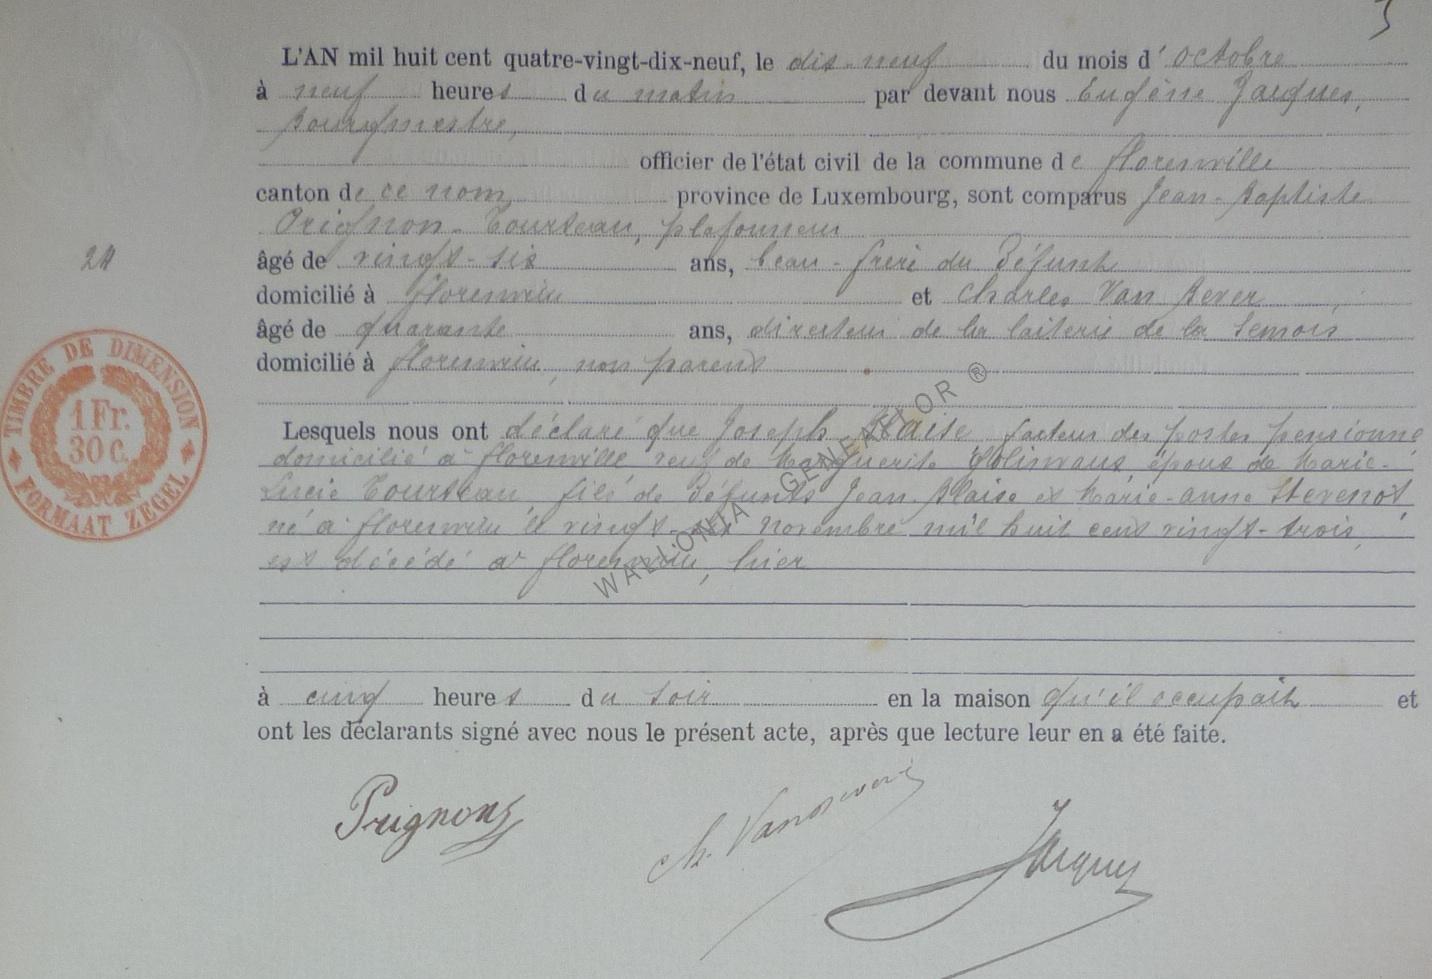 L'AN mil huit cent quatre-vingt-dix-neuf, le dix-neuf du mois d'octobre
à neuf heures du matin par devant nous Eugène Jacques,
Bourgmestre,
officier de l'état civil de la commune de florenville
canton de ce nom province de Luxembourg, sont comparus Jean-Baptiste
Prignon-Tourteau, plafonneur
24
âgé de vingt-six ans, beau-frère du Défunt
domicilié à florenville et Charles Van Bever
âgé de quarante ans, directeur de la laiterie de la Semois
domicilié à florenville, non parent
TIMBRE DE DIMENSION
1 Fr.
30 C.
FORMAAT ZEGEL
WALLONIA GENEALOR ®
Lesquels nous ont déclaré que Joseph Blaise facteur des postes pensionné
domicilié à florenville veuf de Marguerite époux de Marie-
Lucie Tourteau, fils de Défunts Jean Blaise et Marie-Anne Stevenot
né à florenville le vingt- novembre mil huit cent vingt-trois,
est décédé à florenville, hier
à cinq heures du soir en la maison qu'il occupait et
ont les déclarants signé avec nous le présent acte, après que lecture leur en a été faite.
Prignon
Ch. Vanbever
Jacques